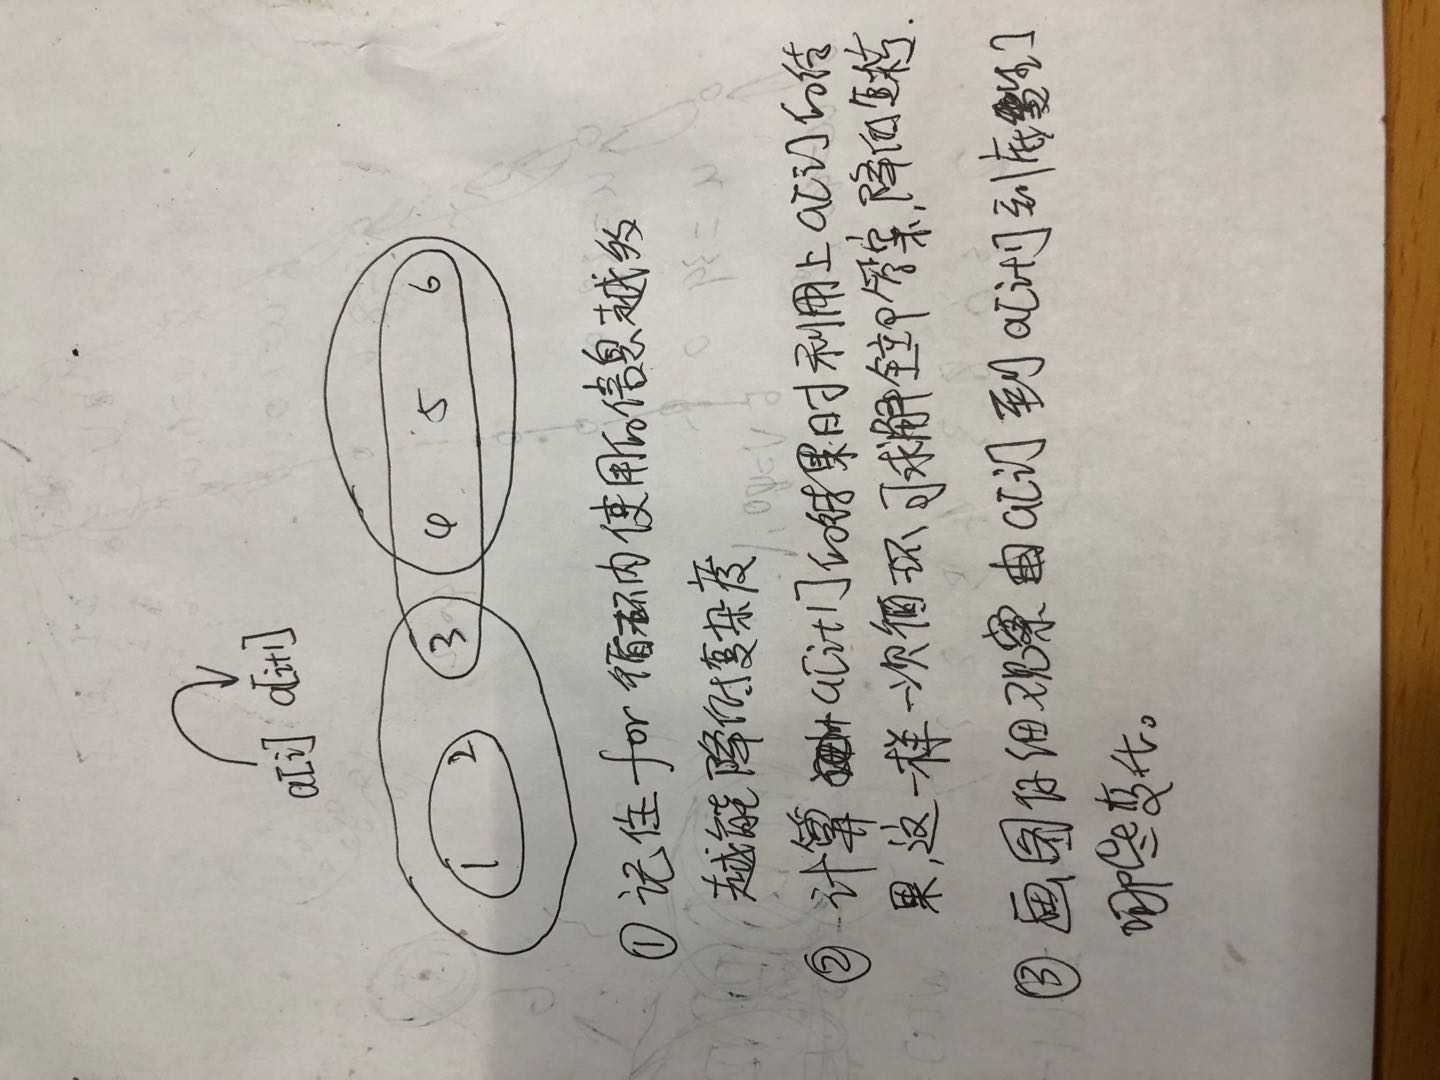 a[i] a[i+1]
1 2 3 4 5 6
① 记住for循环内使用的信息越多
越能降低复杂度
② 计算 a[i+1]的结果时利用上a[i]的结
果,这一样一次循环可求解全部答案,降低复杂.
③ 画图仔细观察由a[i]到a[i+1]到底发生了
哪些变化。